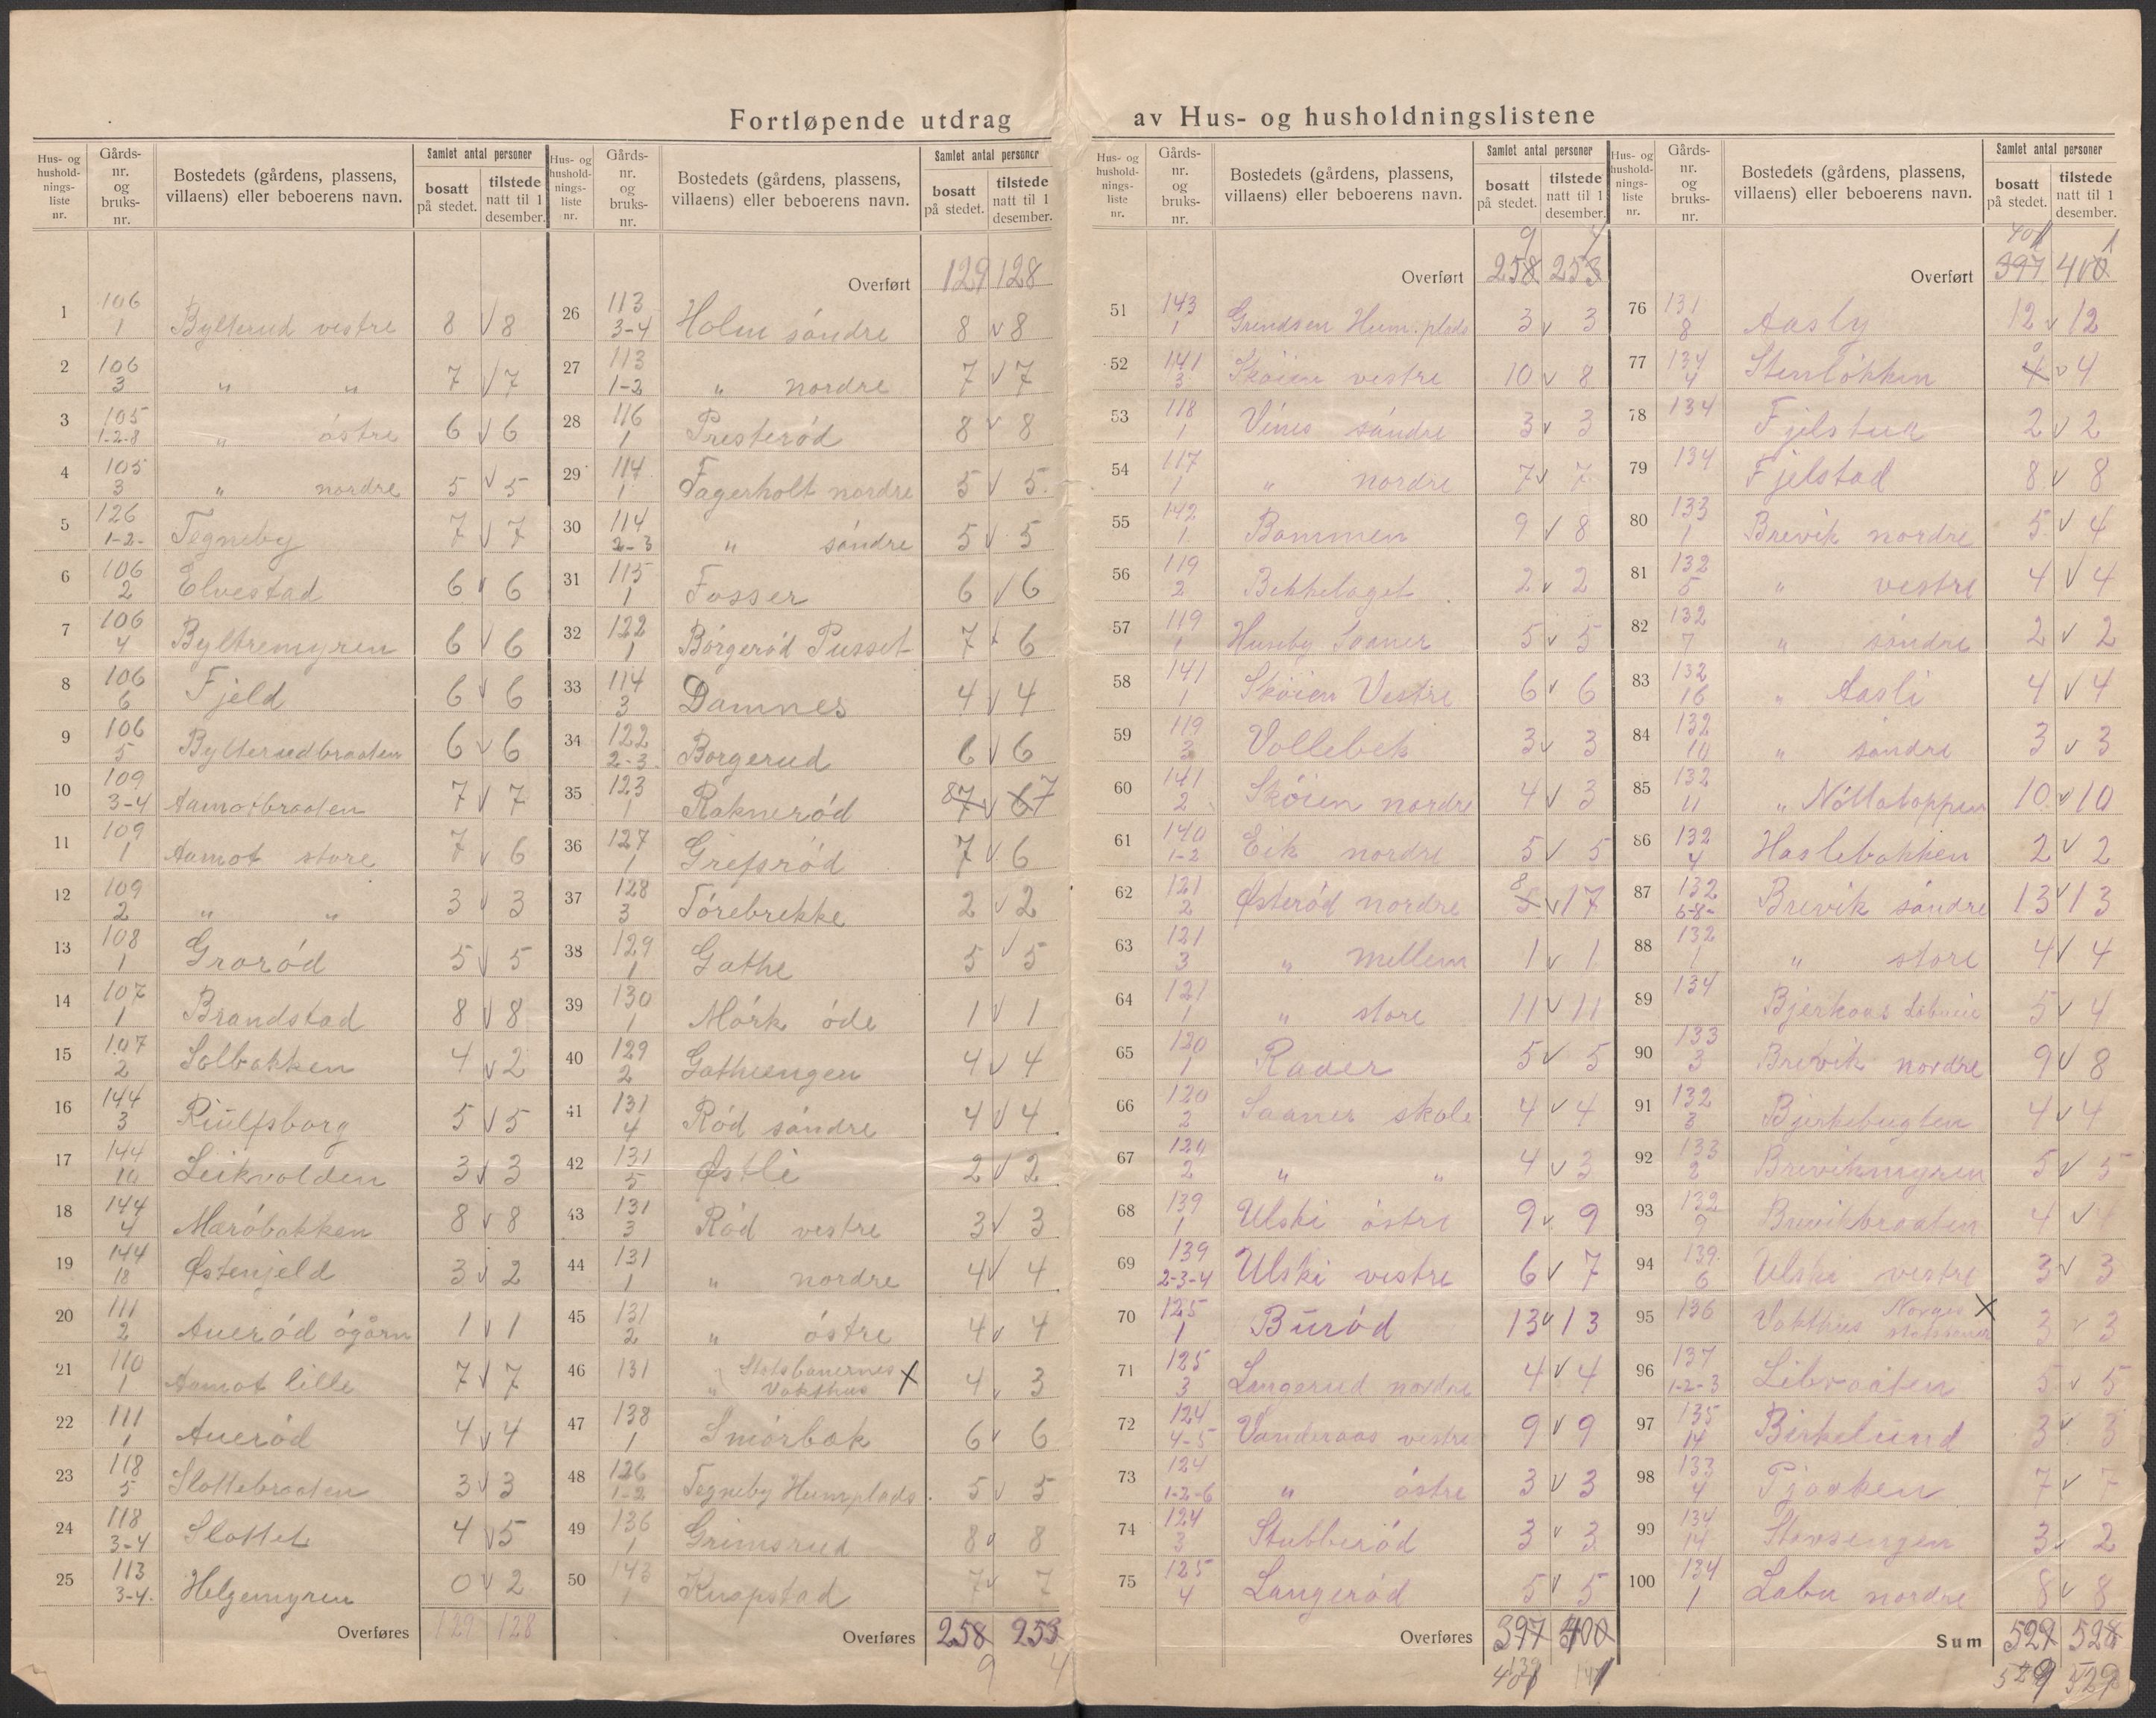 Fortløpende utdrag av Hus- og husholdningslistene
Hus- og hushold-nings-liste nr. | Gårds-nr. og bruks-nr. | Bostedets (gårdens, plassens, villaens) eller beboerens navn. | Samlet antal personer | bosatt på stedet. | tilstede natt til 1 desember.
1 106/1 Bylterud vestre 8 v 8
2 106/3 " " 7 v 7
3 105/1-2-8 " østre 6 v 6
4 105/3 " nordre 5 v 5
5 126/1-2- Tegneby 7 v 7
6 106/2 Elvestad 6 v 6
7 106/4 Byltremyren 6 v 6
8 106/6 Fjeld 6 v 6
9 106/5 Bylterudbraaten 6 v 6
10 109/3-4 Aamotbraaten 7 v 7
11 109/1 Aamot store 7 v 6
12 109/2 " " 3 v 3
13 108/1 Grorød 5 v 5
14 107/1 Brandstad 8 v 8
15 107/2 Solbakken 4 v 2
16 144/3 Riulfsborg 5 v 5
17 144/10 Leikvolden 3 v 3
18 144/4 Mærøbakken 8 v 8
19 144/18 Østenjeld 3 v 2
20 111/2 Auerød ógårn 1 v 1
21 110/1 Aamot lille 7 v 7
22 111/1 Auerød 4 v 4
23 118/5 Slottebraaten 3 v 3
24 118/3-4 Slottet 4 v 5
25 113/3-4. Helgemyren 0 v 2
Overføres 129 128
Hus- og hushold-nings-liste nr. | Gårds-nr. og bruks-nr. | Bostedets (gårdens, plassens, villaens) eller beboerens navn. | Samlet antal personer | bosatt på stedet. | tilstede natt til 1 desember.
Overført 129 128
26 113/3-4 Holm søndre 8 v 8
27 113/1-2 " nordre 7 v 7
28 116/1 Presterød 8 v 8
29 114/1 Fagerholt nordre 5 v 5
30 114/2-3 " søndre 5 v 5
31 115/1 Fosser 6 v 6
32 122/1 Børgerød Pusset 7 v 6
33 114/3 Damnes 4 v 4
34 122/2-3 Borgerud 6 v 6
35 123/1 Raknerød 8 7 v 6 7
36 127/1 Grefsrød 7 v 6
37 128/3 Tørebrekke 2 v 2
38 129/1 Gathe 5 v 5
39 130/1 Mørk øde 1 v 1
40 129/2 Gatheengen 4 v 4
41 131/4 Rød søndre 4 v 4
42 131/5 Østli 2 v 2
43 131/3 Rød vestre 3 v 3
44 131/1 " nordre 4 v 4
45 131/2 " østre 4 v 4
46 131 " Statsbanernes Vakthus X 4 v 3
47 138/1 Smørbæk 6 v 6
48 126/1-2 Tegneby Humplads 5 v 5
49 136/1 Grimsrud 8 v 8
50 143/1 Knapstad 7 v 7
Overføres 258 253
9 4
Hus- og hushold-nings-liste nr. | Gårds-nr. og bruks-nr. | Bostedets (gårdens, plassens, villaens) eller beboerens navn. | Samlet antal personer | bosatt på stedet. | tilstede natt til 1 desember.
9 4
Overført 258 253
51 143/1 Grindsen Hum.plads 3 v 3
52 141/3 Skøien vestre 10 v 8
53 118/1 Vines søndre 3 v 3
54 117/1 " nordre 7 v 7
55 142/1 Bommen 9 v 8
56 119/2 Bekkelaget 2 v 2
57 119/1 Huseby Saaner 5 v 5
58 141/1 Skøien Vestre 6 v 6
59 119/3 Vollebek 3 v 3
60 141/2 Skøien nordre 4 v 3
61 140/1-2 Eik nordre 5 v 5
62 121/2 Østerød nordre 8 5 v 17
63 121/3 " mellem 1 v 1
64 121/1 " store 11 v 11
65 120/1 Rader 5 v 5
66 120/2 Saaner skole 4 v 4
67 120/2 " " 4 v 3
68 139/1 Ulski østre 9 v 9
69 139/2-3-4 Ulski vestre 6 v 7
70 125/1 Burød 13 v 13
71 125/3 Langerud nordre 4 v 4
72 124/4-5 Vanderaas vestre 9 v 9
73 124/1-2-6 " østre 3 v 3
74 124/3 Stubberød 3 v 3
75 125/4 Langerød 5 v 5
Overføres 397 400
139 147
401 1
Hus- og hushold-nings-liste nr. | Gårds-nr. og bruks-nr. | Bostedets (gårdens, plassens, villaens) eller beboerens navn. | Samlet antal personer | bosatt på stedet. | tilstede natt til 1 desember.
401 1
Overført 397 400
76 131/8 Aasly 12 v 12
77 134/4 Stenløkken 0 4 v 4
78 134 Fjelstua 2 v 2
79 134 Fjelstad 8 v 8
80 133/1 Brevik nordre 5 v 4
81 132/5 " vestre 4 v 4
82 132/7 " søndre 2 v 2
83 132/16 " Aasli 4 v 4
84 132/10 " søndre 3 v 3
85 132/11 " Nøttetoppen 10 v 10
86 132/4 Haslebakken 2 v 2
87 132/6-8- Brevik søndre 13 v 13
88 132/1 " store 4 v 4
89 134 Bjerkaas 5 v 4
90 133/3 Brevik nordre 9 v 8
91 132/3 Bjerkebugten 4 v 4
92 133/2 Brevikmyren 5 v 5
93 132/9 Brevikbraaten 4 v 4
94 139./6 Ulski vestre 3 v 3
95 136 Vakthus Norges statsbaner X 3 v 3
96 137/1-2-3 Libraaten 5 v 5
97 135/14 Birkelund 3 v 3
98 133/4 Pjaaken 7 v 7
99 134/14 Stensengen 3 v 2
100 134/1 Labu nordre 8 v 8
Sum 529 528
529 529